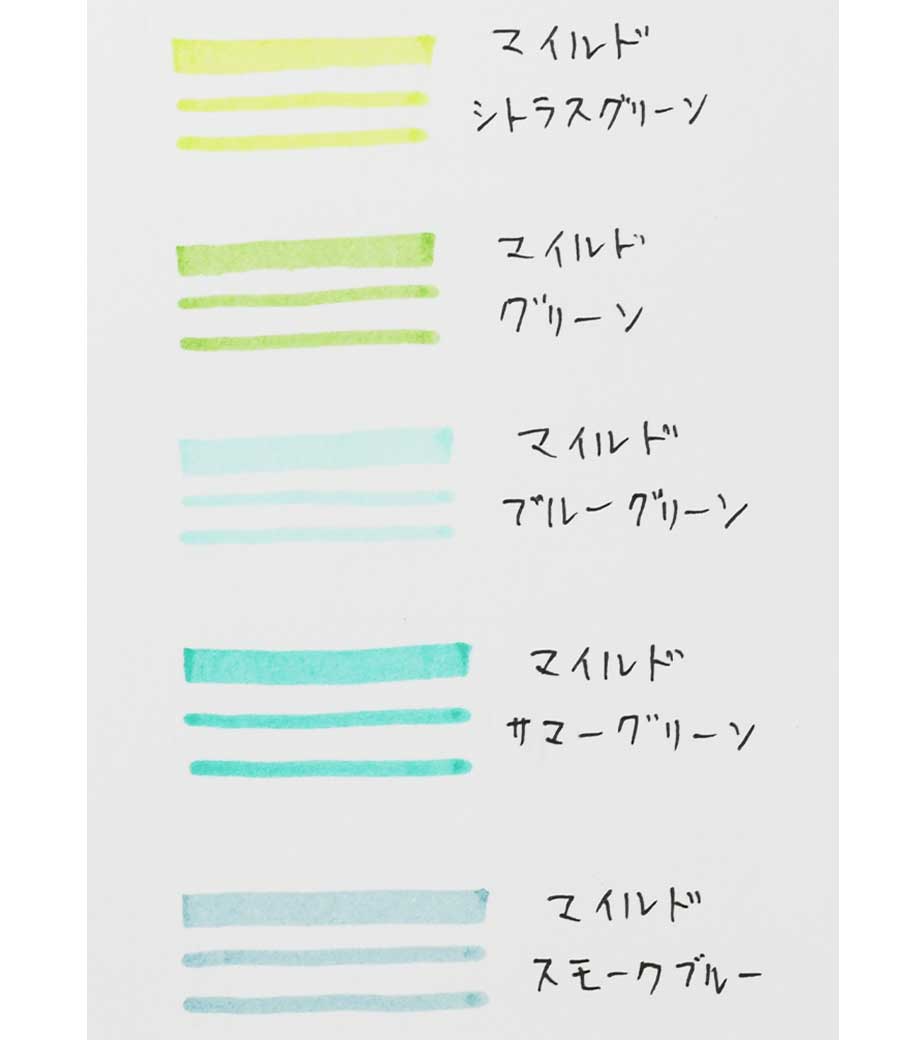 マイルド
シトラスグリーン
マイルド
グリーン
マイルド
ブルーグリーン
マイルド
サマーグリーン
マイルド
スモークブルー